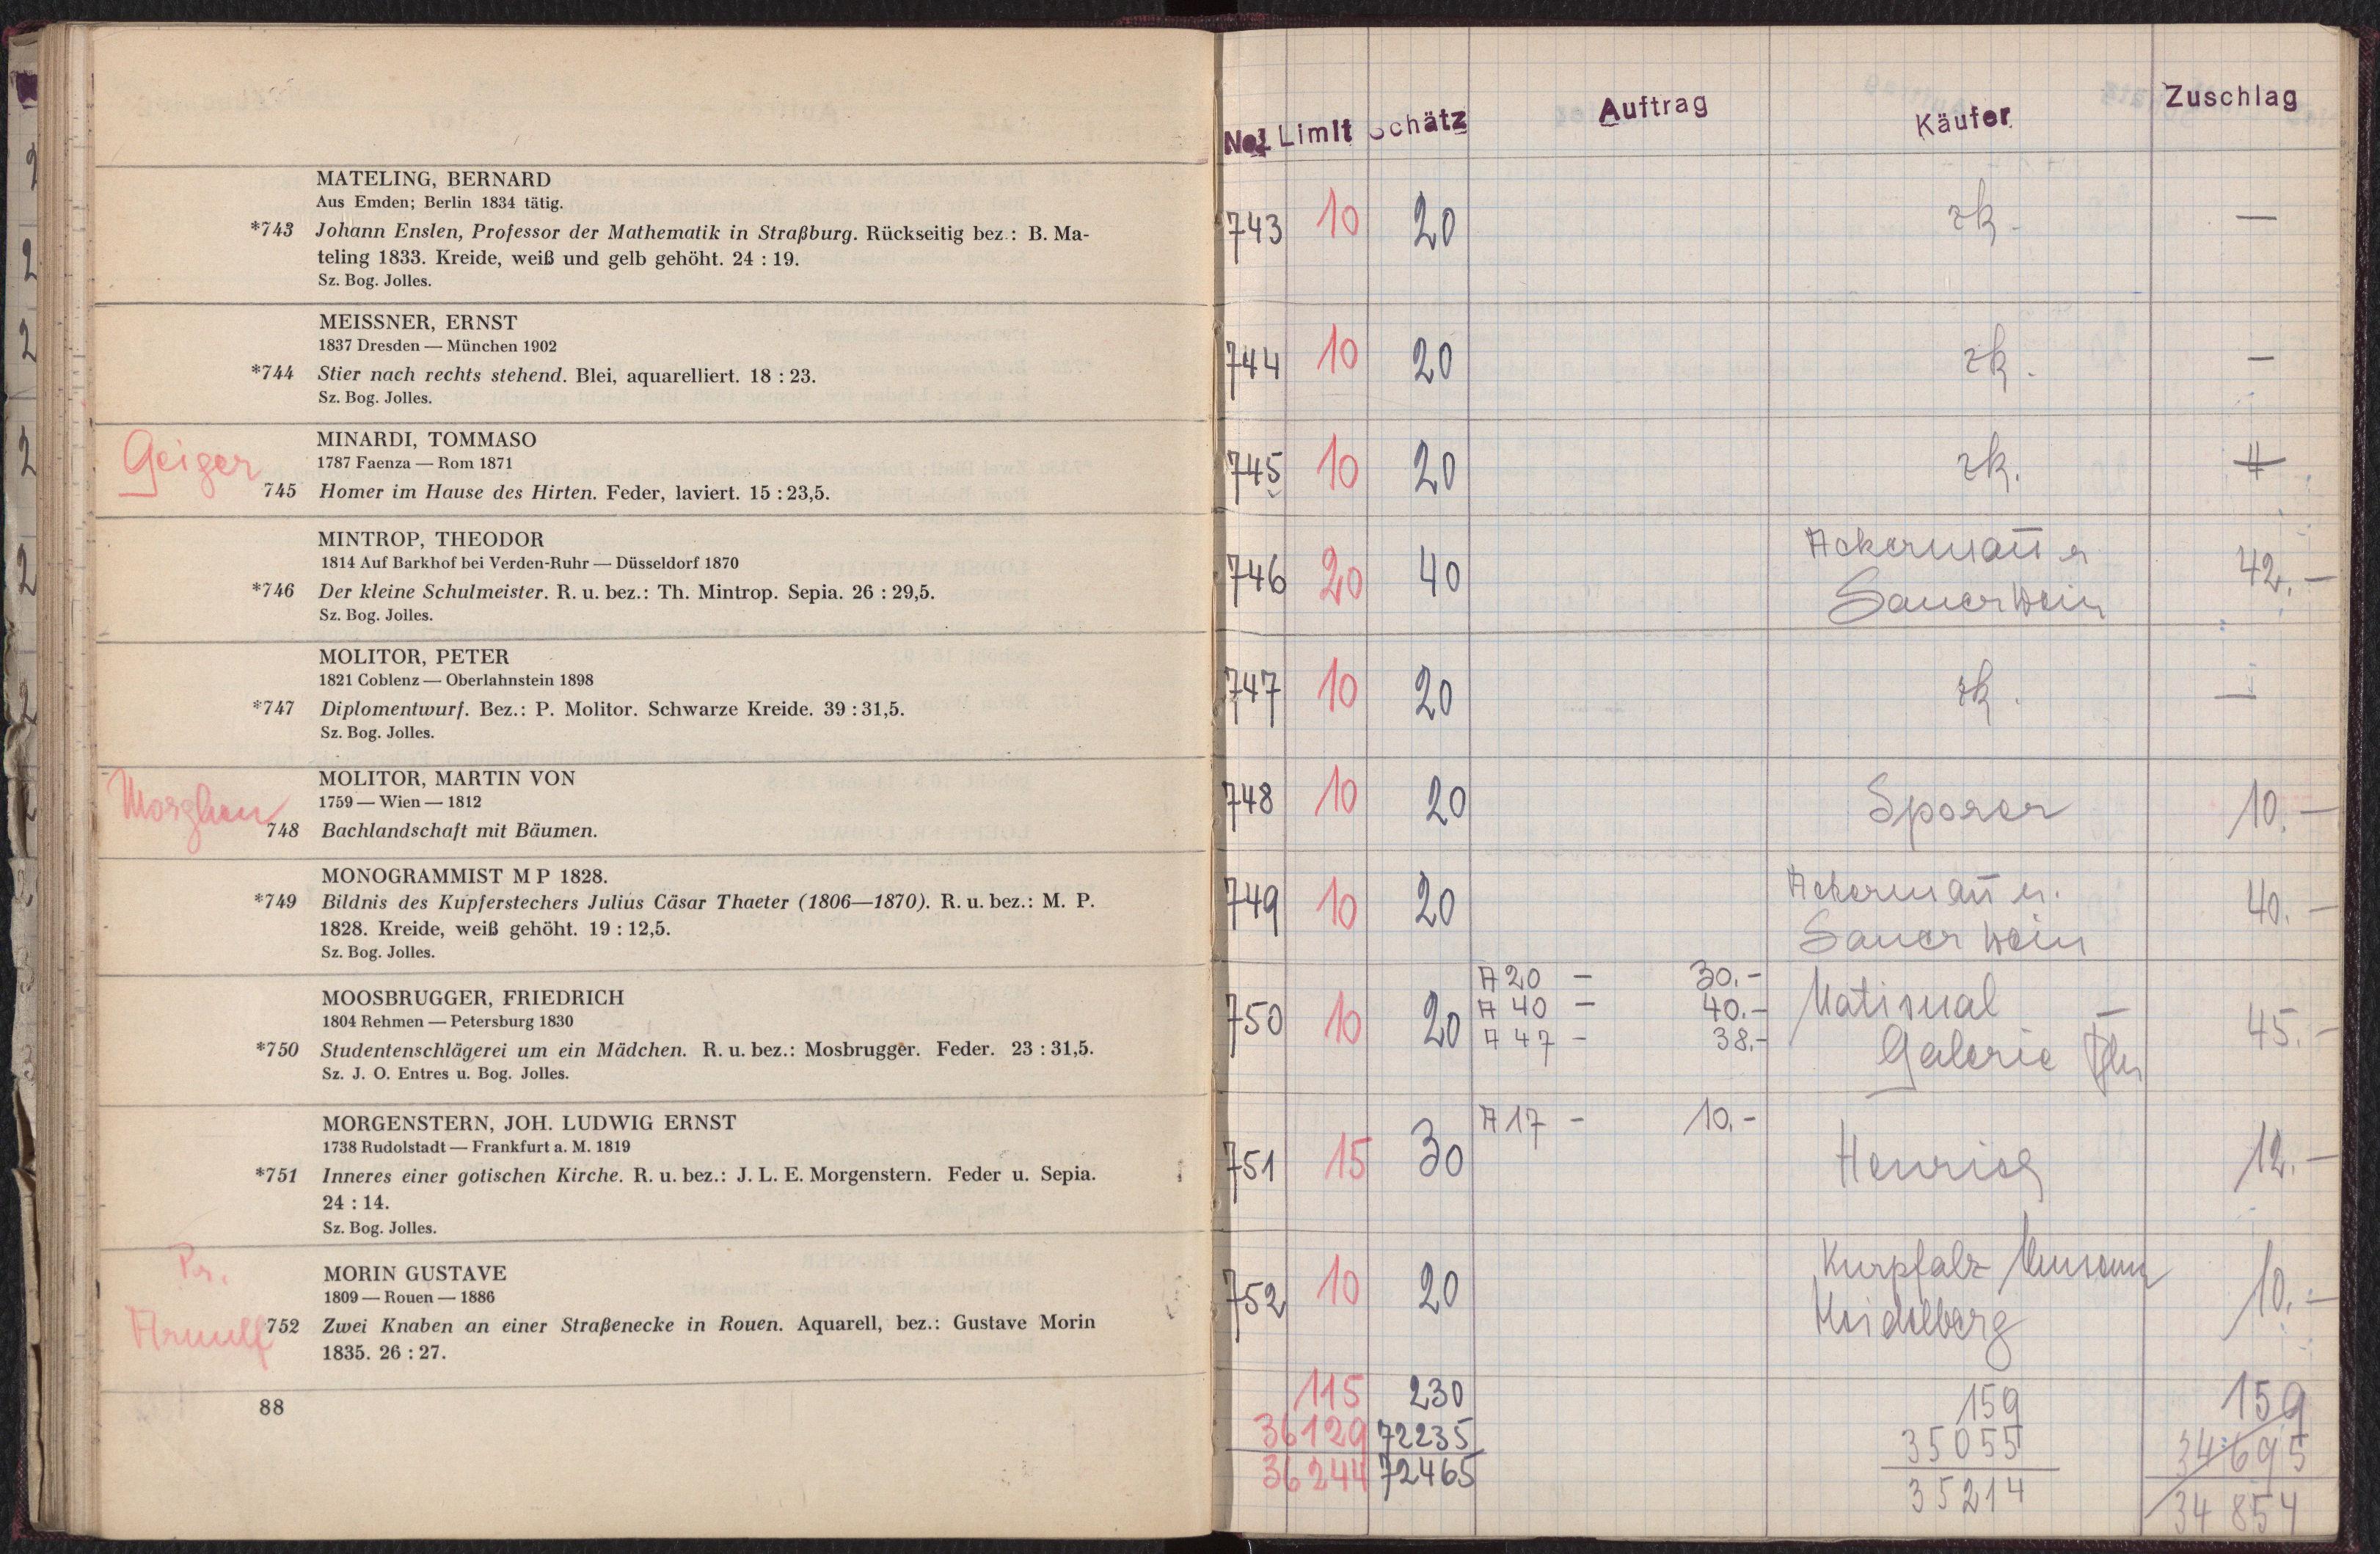 MATELING, BERNARD
Aus Emden; Berlin 1834 tätig.
*743 Johann Enslen, Professor der Mathematik in Straßburg. Rückseitig bez.: B. Ma-
teling 1833. Kreide, weiß und gelb gehöht. 24 : 19.
Sz. Bog. Jolles.
MEISSNER, ERNST
1837 Dresden — München 1902
*744 Stier nach rechts stehend. Blei, aquarelliert. 18 : 23.
Sz. Bog. Jolles.
Geiger
MINARDI, TOMMASO
1787 Faenza — Rom 1871
745 Homer im Hause des Hirten. Feder, laviert. 15 : 23,5.
MINTROP, THEODOR
1814 Auf Barkhof bei Verden-Ruhr — Düsseldorf 1870
*746 Der kleine Schulmeister. R. u. bez.: Th. Mintrop. Sepia. 26 : 29,5.
Sz. Bog. Jolles.
MOLITOR, PETER
1821 Coblenz — Oberlahnstein 1898
*747 Diplomentwurf. Bez.: P. Molitor. Schwarze Kreide. 39 : 31,5.
Sz. Bog. Jolles.
MOLITOR, MARTIN VON
1759 — Wien — 1812
748 Bachlandschaft mit Bäumen.
MONOGRAMMIST M P 1828.
*749 Bildnis des Kupferstechers Julius Cäsar Thaeter (1806—1870). R. u. bez.: M. P.
1828. Kreide, weiß gehöht. 19 : 12,5.
Sz. Bog. Jolles.
MOOSBRUGGER, FRIEDRICH
1804 Rehmen — Petersburg 1830
*750 Studentenschlägerei um ein Mädchen. R. u. bez.: Mosbrugger. Feder. 23 : 31,5.
Sz. J. O. Entres u. Bog. Jolles.
MORGENSTERN, JOH. LUDWIG ERNST
1738 Rudolstadt — Frankfurt a. M. 1819
*751 Inneres einer gotischen Kirche. R. u. bez.: J. L. E. Morgenstern. Feder u. Sepia.
24 : 14.
Sz. Bog. Jolles.
Pr.
Arnulf
MORIN GUSTAVE
1809 — Rouen — 1886
752 Zwei Knaben an einer Straßenecke in Rouen. Aquarell, bez.: Gustave Morin
1835. 26 : 27.
88
Limit Schätz Auftrag Käufer Zuschlag
743 10 20 zk. —
744 10 20 zk. —
745 10 20 zk.
746 20 40 Ackermann u 42.—
Sauerwein
747 10 20 zk. —
748 10 20 Sporer 10.—
749 10 20 Ackermann u. 40.—
Sauerwein
A 20 – 30.–
750 10 20 A 40 – 40.– National 45.–
A 47 – 38.– Galerie
A 17 – 10.–
751 15 30 Henrich 12.–
752 10 20 Kurpfalz Museum 10.–
Heidelberg
115 230 159 159
36129 72235 35055 34695
36244 72465 35214 34854